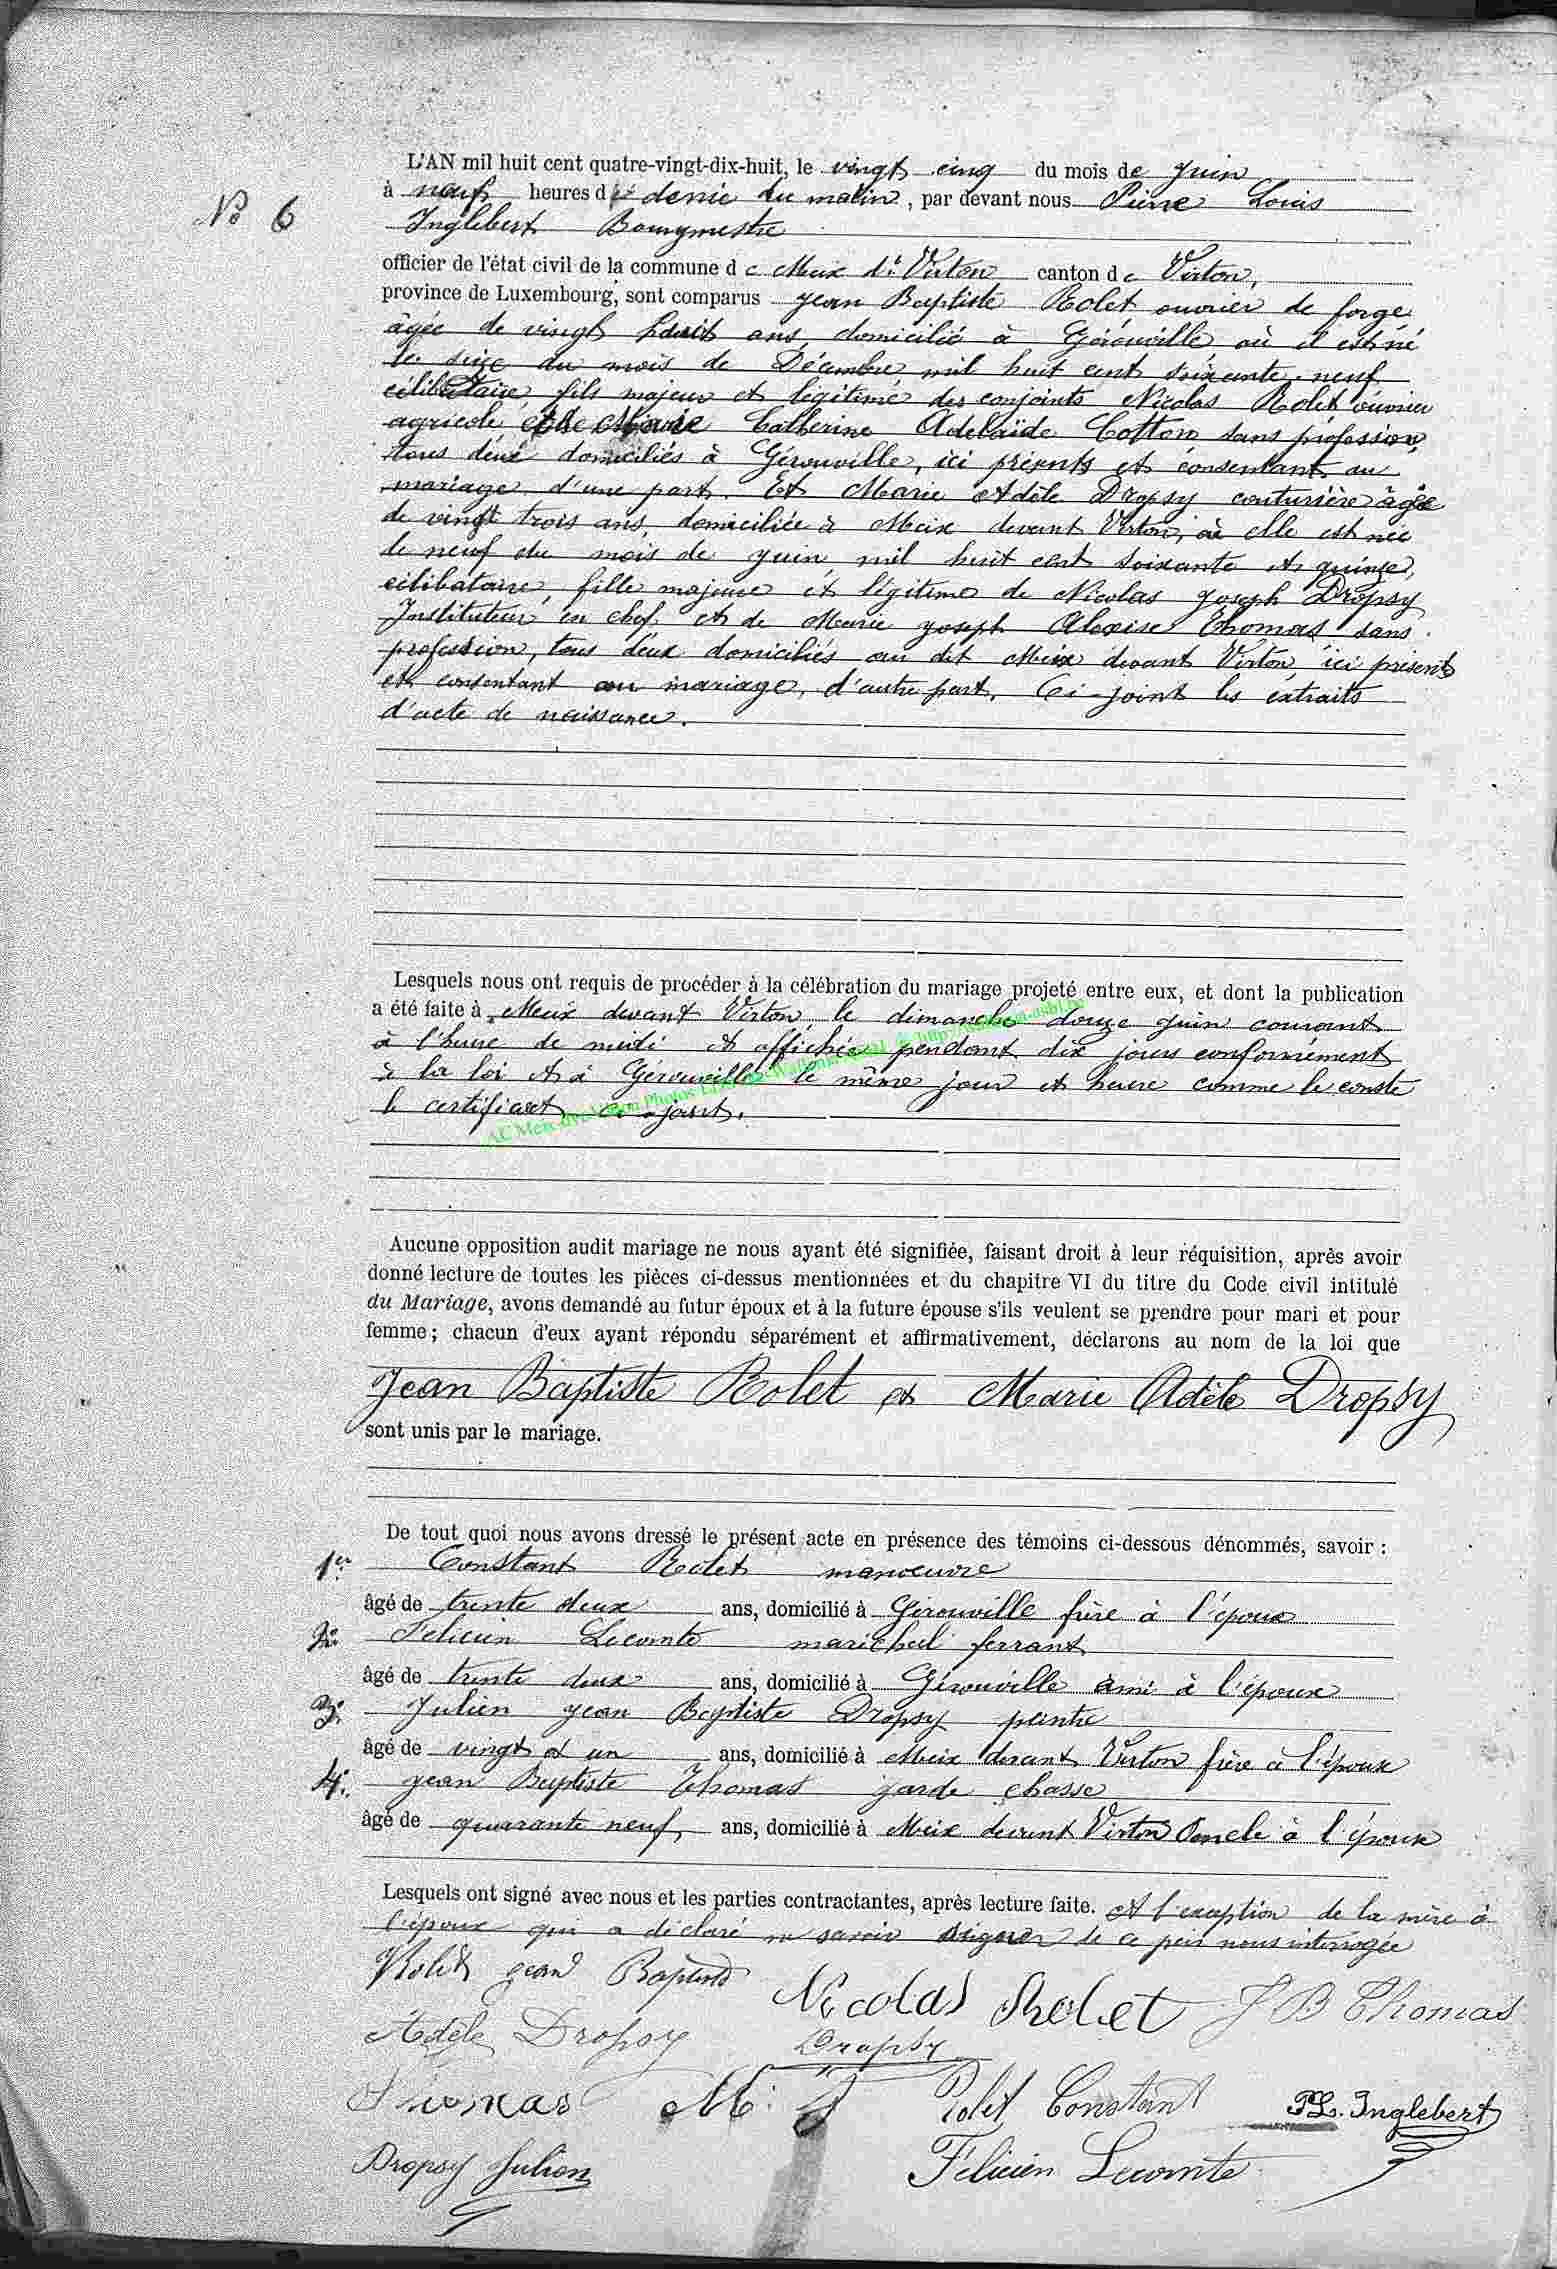 L'AN mil huit cent quatre-vingt-dix-huit, le vingt cinq du mois de juin
N° 6
à neuf heures de demie du matin, par devant nous Pierre Louis
Inglebert Bourgmestre
officier de l'état civil de la commune de Meix dt Virton canton de Virton,
province de Luxembourg, sont comparus jean Baptiste Rolet ouvrier de forge
âgée de vingt huit ans, domicilié à Gérouville où il est né
le seize du mois de Décembre mil huit cent soixante neuf
célibataire, fils majeur et légitime des conjoints Nicolas Rolet ouvrier
agricole et de Marie Catherine Adelaïde Cotton sans profession,
tous deux domiciliés à Gérouville, ici présents et consentant au
mariage d'une part. Et Marie Adèle Dropsy couturière âgée
de vingt trois ans, domiciliée à Meix devant Virton, où elle est née
le neuf du mois de juin, mil huit cent soixante et quinze,
célibataire, fille majeure et légitime de Nicolas joseph Dropsy
Instituteur en chef et de Marie joseph Aloxise Thomas sans
profession, tous deux domiciliés au dit Meix devant Virton ici présents
et consentant au mariage, d'autre part. Ci-joint les extraits
d'acte de naissance.
Lesquels nous ont requis de procéder à la célébration du mariage projeté entre eux, et dont la publication
a été faite à Meix devant Virton, le dimanche douze juin courant
à l'heure de midi et affichée pendant dix jours conformément
à la loi et à Gérouville le même jour et heure comme le conste
le certificat ci-joint.
Aucune opposition audit mariage ne nous ayant été signifiée, faisant droit à leur réquisition, après avoir
donné lecture de toutes les pièces ci-dessus mentionnées et du chapitre VI du titre du Code civil intitulé
du Mariage, avons demandé au futur époux et à la future épouse s'ils veulent se prendre pour mari et pour
femme; chacun d'eux ayant répondu séparément et affirmativement, déclarons au nom de la loi que
Jean Baptiste Rolet et Marie Adèle Dropsy
sont unis par le mariage.
De tout quoi nous avons dressé le présent acte en présence des témoins ci-dessous dénommés, savoir :
1er Constant Rolet manoeuvre
âgé de trente deux ans, domicilié à Gérouville frère à l'époux
2e Félicien Lecomte maréchal ferrant
âgé de trente deux ans, domicilié à Gérouville ami à l'époux
3e Julien jean Baptiste Dropsy peintre
âgé de vingt et un ans, domicilié à Meix devant Virton frère à l'épouse
4e jean Baptiste Thomas garde chasse
âgé de quarante neuf, ans, domicilié à Meix devant Virton Oncle à l'épouse
Lesquels ont signé avec nous et les parties contractantes, après lecture faite. A l'exception de la mère à
l'époux qui a déclaré ne savoir signer de ce par nous interrogée
Rolet jean Baptiste
Nicolas Rolet J B Thomas
Adèle Dropsy Dropsy
Thomas M. J
Rolet Constant PL. Inglebert
Dropsy Julien Félicien Lecomte